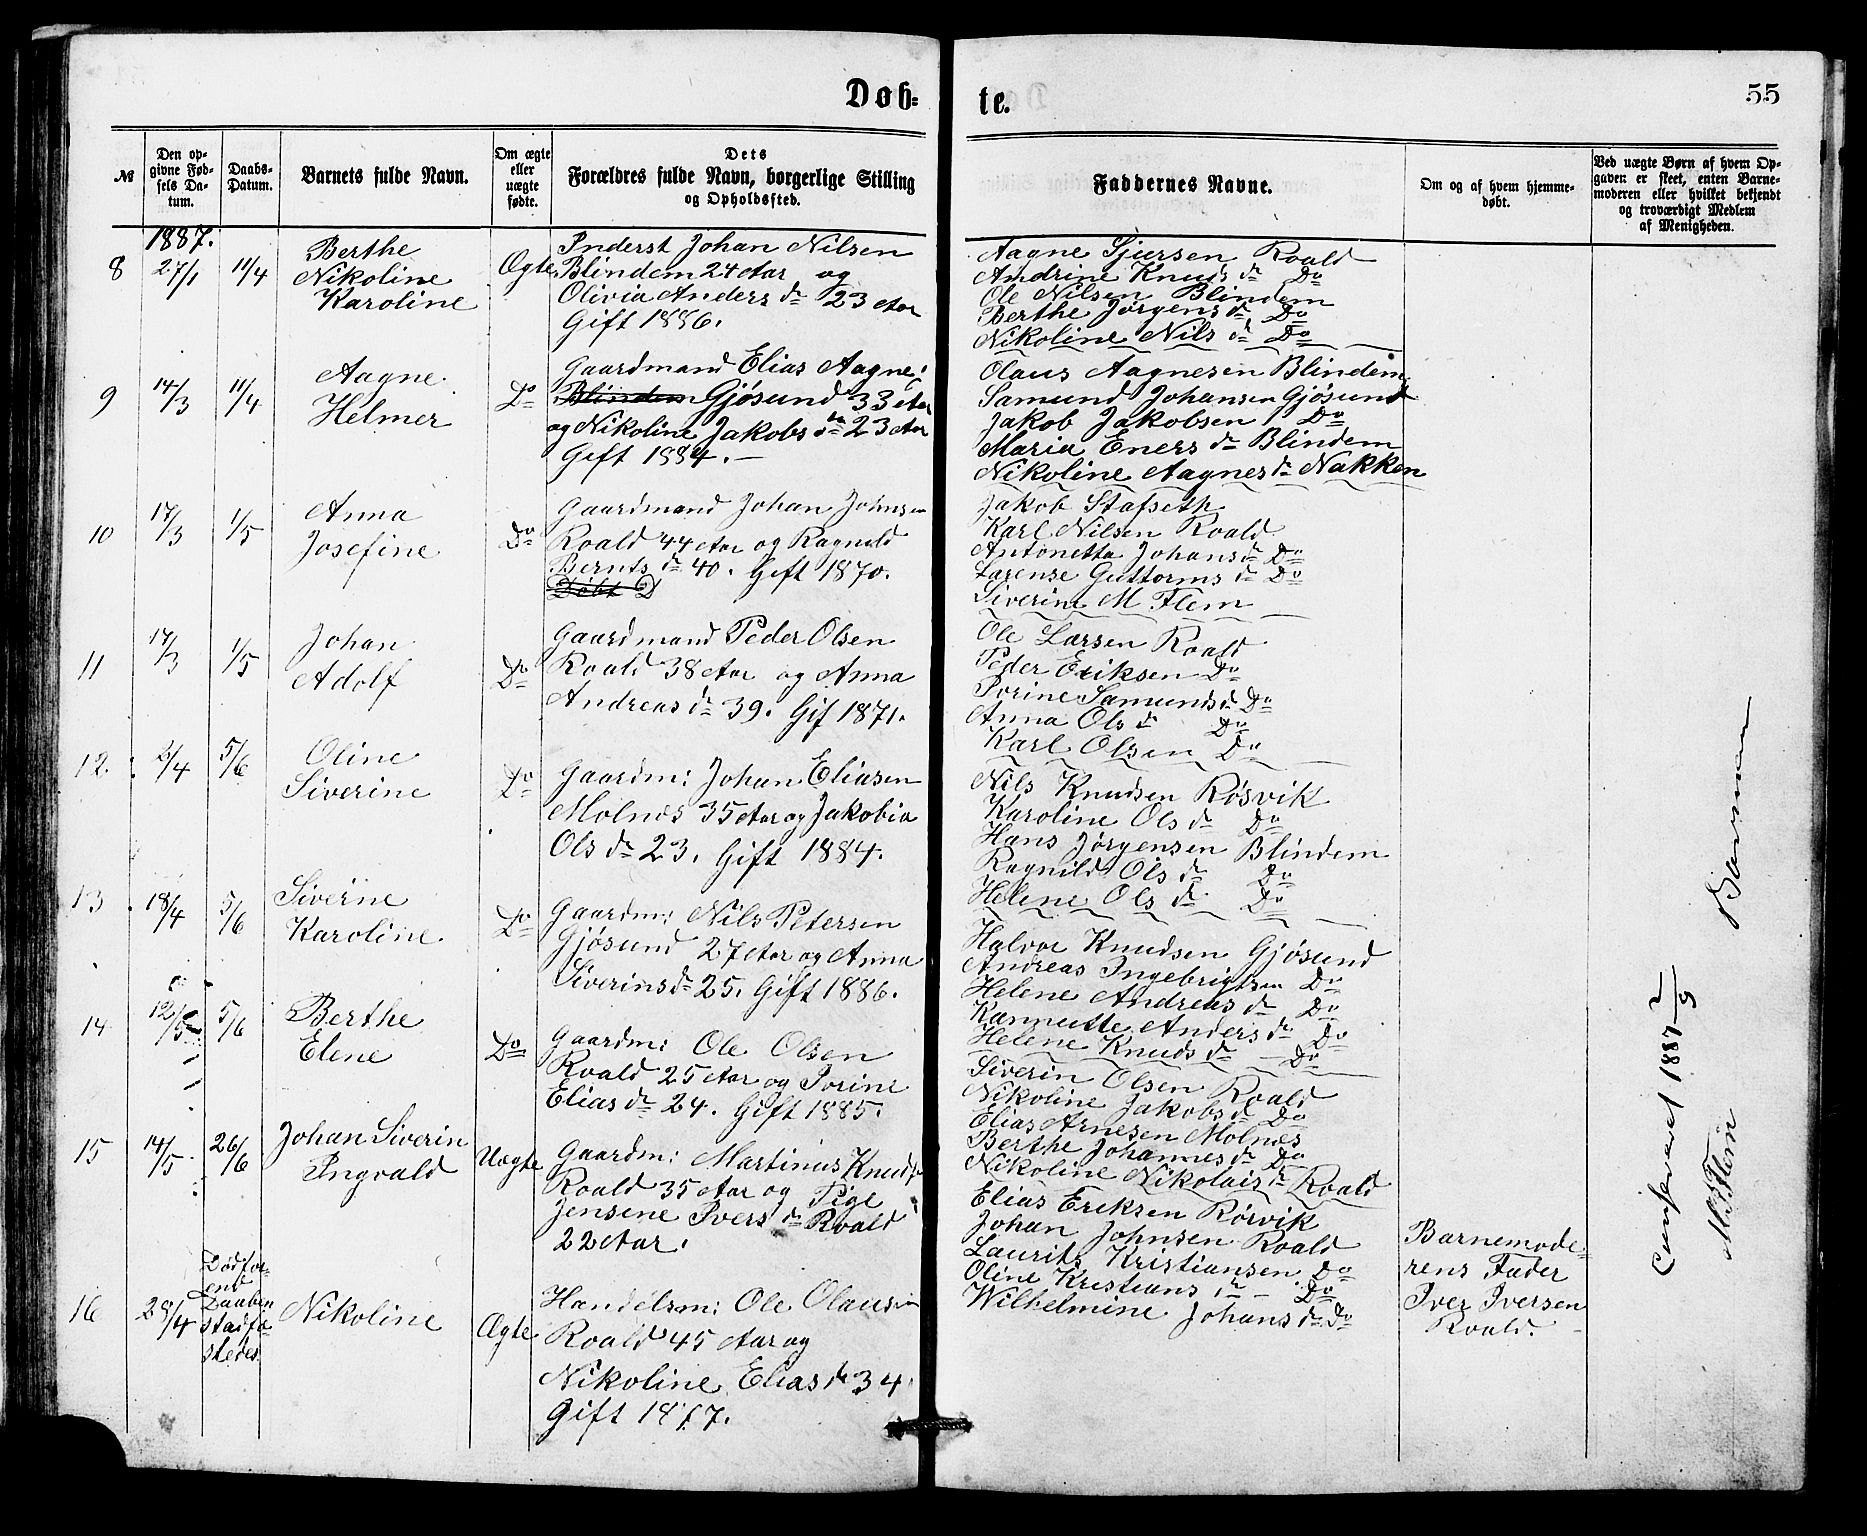 Døb-
te.
55
№
Den opgivne Fødsels Datum.
Daabs-Datum.
Barnets fulde Navn.
Om ægte eller uægte fødte.
Dets
Forældres fulde Navn, borgerlige Stilling
og Opholdssted.
Faddernes Navne.
Om og af hvem hjemmedøbt.
Ved uægte Børn af hvem Opgaven er skeet, enten Barnemoderen eller hvilket bekjendt og troværdigt Medlem af Menigheden.
1887.
8
27/1
11/4
Berthe
Nikoline
Karoline
Ægte
Inderst Johan Nilsen
Blindem 24 Aar og
Olivia Anders dr 23 Aar
Gift 1886.
Aagne Sjursen Roald
Andrine Knuds dr Do
Ole Nilsen Blindem
Berthe Jørgens dr Do
Nikoline Nils dr Do
9
14/3
11/4
Aagne
Helmer
Do
Gaardmand Elias Aagne:
Blindem Gjøsund 33 Aar
og Nikoline Jakobs dr 23 Aar
Gift 1884.
Olaus Aagnesen Blindem
Samund Johansen Gjøsund
Jakob Jakobsen Do
Maria Eners dr Blindem
Nikoline Aagnes dr Nakken
10
17/3
1/5
Anna
Josefine
Do
Gaardmand Johan Johnsen
Roald 44 Aar og Ragnild
Bernts dr 40. Gift 1870.
Døbt D
Jakob Stafseth
Karl Nilsen Roald
Antonetta Johans dr Do
Larense Guttorms dr Do
Siverine M Flem
11
17/3
1/5
Johan
Adolf
Do
Gaardmand Peder Olsen
Roald 38 Aar og Anna
Andreas dr 39. Gif 1871.
Ole Larsen Roald
Peder Eriksen Do
Iverine Samunds dr Do
Anna Ols dr Do
Karl Olsen Do
12.
2/4
5/6
Oline
Siverine
Do
Gaardm: Johan Eliasen
Molnes 35 Aar og Jakobia
Ols dr 23. Gift 1884.
Nils Knudsen Røsvik
Karoline Ols dr Do
Hans Jørgensen Blindem
Ragnild Ols dr Do
Helene Ols dr Do
13
18/4
5/6
Siverine
Karoline
Do
Gaardm: Nils Petersen
Gjøsund 27 Aar og Anna
Siverins dr 25. Gift 1886.
Halvor Knudsen Gjøsund
Andreas Ingebrigtsen Do
Helene Andreas dr Do
Kannutte Anders dr Do
Helene Knuds dr Do
14
12/5
5/6
Berthe
Elene
Do
Gaardm: Ole Olsen
Roald 25 Aar og Iorine
Elias dr 24. Gift 1885.
Siverin Olsen Roald
Nikoline Jakobs dr Do
Elias Arnesen Molnes
Berthe Johannes dr Do
Nikoline Nikolais dr Roald
15
14/5
26/6
Johan Siverin
Ingvald
Uægte
Gaardm: Martinus Knuds
Roald 35 Aar og Pige
Jensene Ivers dr Roald
22 Aar.
Elias Eriksen Rørvik
Johan Johnsen Roald
Laurits Kristiansen Do
Oline Kristians dr Do
Wilhelmine Johans dr Do
Barnemode-
rens Fader
Iver Iversen
Roald.
16
28/4
Død før
end
Daaben
stadfæ
stedes
Nikoline
Ægte
Handelsm: Ole Olausen
Roald 45 Aar og
Nikoline Elias dr 34
Gift 1877.
Confereret 1887 2/9
M. Flem